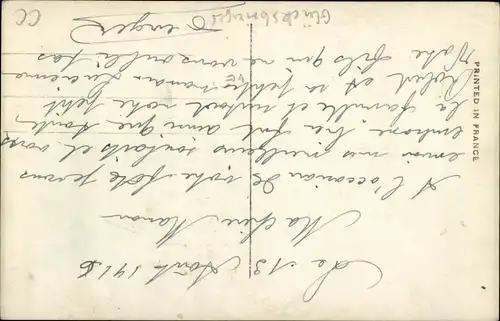 Le 13 Août 1916
Ma chère Maman
A l'occasion de votre fête je vous
envoie mes meilleurs souhaits et vous
embrasse bien fort ainsi que toute
la famille et surtout votre petit
Robert et sa petite maman Lucienne
Votre fils qui ne vous oublie pas
PRINTED IN FRANCE
Glücksbringer
CC